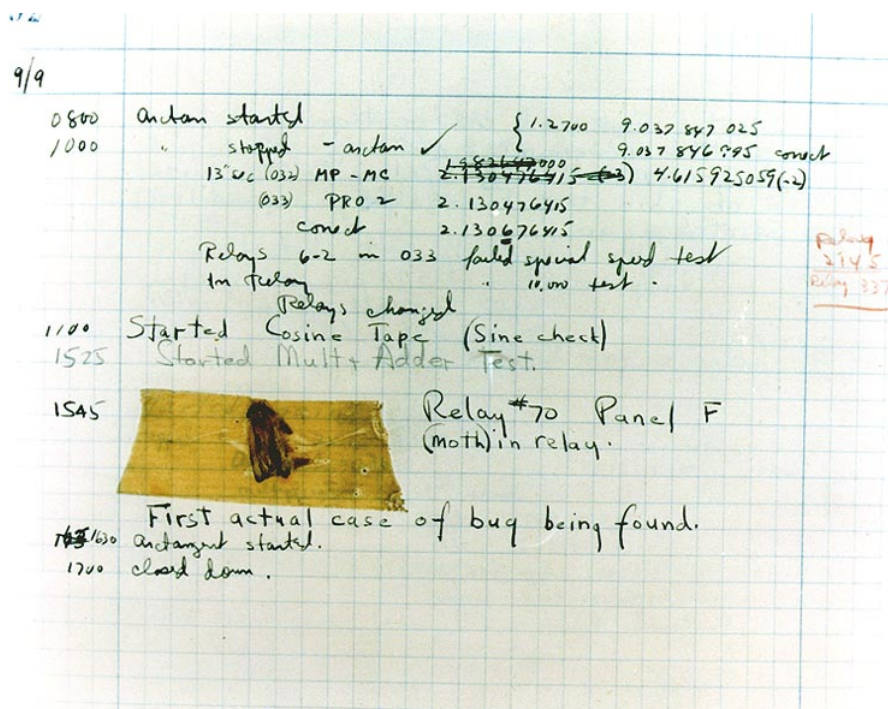 9/9
0800 Antan started
1000 " stopped - antan ✓ { 1.2700 9.037 847 025
9.037 846 995 correct
13"uc (032) MP - MC 2.130476415 (-3) 4.615925059(-2)
(033) PRO 2 2.130476415
correct 2.130676415
Relays 6-2 in 033 failed special speed test
In Relay " 10.000 test .
Relay
2145
Relay 337
Relays changed
1100 Started Cosine Tape (Sine check)
1525 Started Mult + Adder Test.
1545 Relay #70 Panel F
(moth) in relay.
First actual case of bug being found.
1630 antangent started.
1700 closed down .